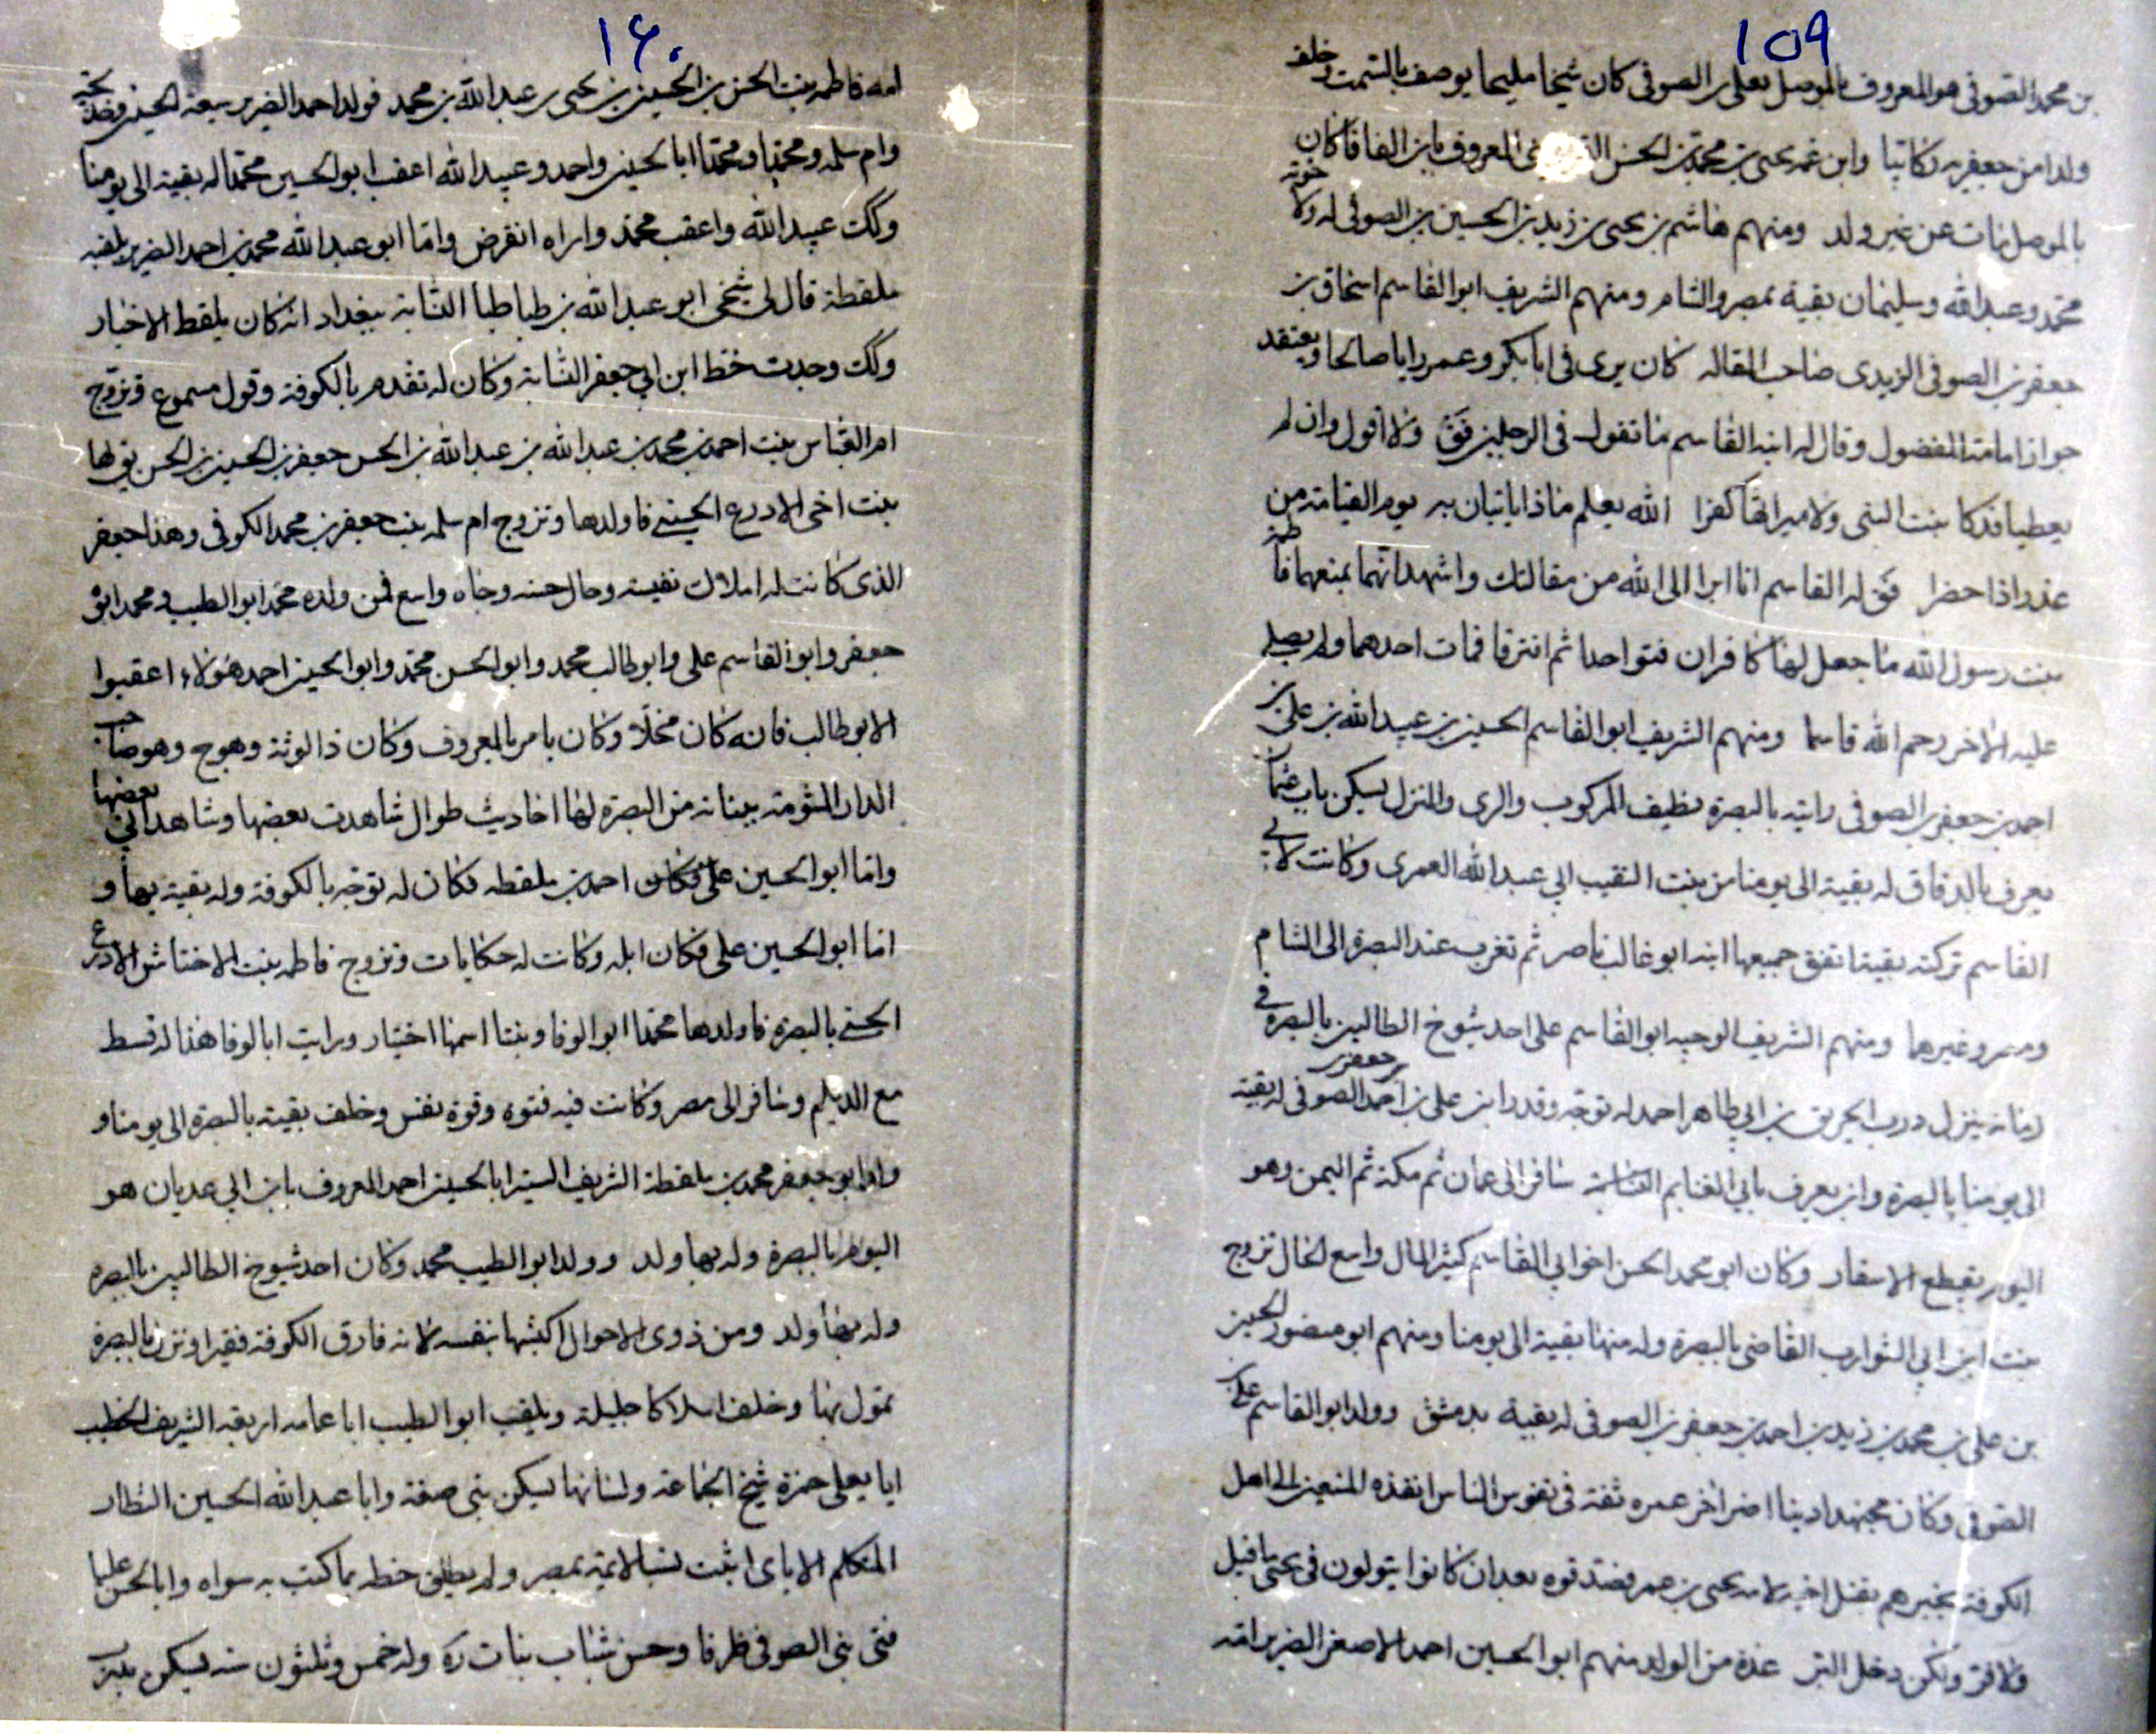 ١٥٩
بن محمد الصوفى هو المعروف بالموصل بعلى بن الصوفى كان شيخا مليحا يوصف بالستمت وخلف
ولدا من جعفرية كاتبا وابن عمه يحيى بن محمد بن الحسن المعروف بابن الفافا كان
بالموصل فمات عن غير ولد ومنهم هاشم بن يحيى بن زيد بن الحسين بن الصوفى له ولاخوته
محمد وعبدالله وسليمان بقية بمصر والشام ومنهم الشريف ابوالقاسم اسحاق بن
جعفر بن الصوفى الزيدى صاحب المقاله كان يرى فى ابا بكر وعمر رايا صالحا ويعتقد
جواز امامة المفضول وقال له ابنه القاسم ما تقول فى الرجلين فق ولا اقول وان لم
يعطيا فدكا بنت النبى ولا ميراثها كفرا الله يعلم ماذا ياتيان به يوم القيامة من
عذر اذا حضرا فق له القاسم انا ابرا الى الله من مقالتك واشهد انهما بمنعهما فاطمة
بنت رسول الله ما جعل لها كافران فتواحدا ثم افترقا فمات احدهما ولم يصل
عليه الاخر رحم الله قاسما ومنهم الشريف ابوالقاسم الحسين بن عبيدالله بن على بن
احمد بن جعفر بن الصوفى رايته بالبصرة نظيف المركوب والزى والمنزل يسكن باب عثمان
يعرف بالدقاق له بقية الى يومنا من بنت النقيب ابى عبدالله العمرى وكانت لابى
القاسم تركته بقينا تفق جميعها ابنه ابو غالب ناصر ثم تغرب عند البصرة الى الشام
ومصر وغيرهما ومنهم الشريف الوجيه ابوالقاسم على احد شيوخ الطالبين بالبصرة فى
زمانه ينزل درب الحريق بن ابى طاهر احمد له توجه وقدر ابن على بن احمد بن جعفر بن الصوفى له بقية
الى يومنا بالبصرة وابن يعرف بابى الغنايم النسابة سافر الى عمان ثم مكة ثم اليمن وهو
اليوم يقطع الاسفار وكان ابو محمد الحسن اخو ابى القاسم كثير المال واسع الحال تزوج
بنت ابن ابى الشوارب القاضى بالبصرة وله منها بقية الى يومنا ومنهم ابو منصور الحسين
بن على بن محمد بن زيد بن احمد بن جعفر بن الصوفى له بقية بدمشق وولد ابوالقاسم على
الصوفى وكان مجتهدا دينا اضر اخر عمره ثقة فى نفوس الناس انفذه المستعين الى اهل
الكوفة يخبرهم بقتل اخيه لامه يحيى بن عمر فصدقوه بعد ان كانوا يتولون فى يحيى ما قيل
ولا فر ولكن دخل البر عدة من الولد منهم ابوالحسين احمد الاصغر الضرير امه
١٦٠
امه فاطمه بنت الحسن بن الحسين بن يحيى بن عبدالله بن محمد فولد احمد الضرير سبعه الحسين وخديجة
وام سلمه ومحمدا ومحمدا ابا الحسين واحمد وعبيدالله اعقب ابوالحسين محمدا له بقية الى يومنا
وكك عبيدالله واعقب محمد واراه انقرض واما ابو عبدالله محمد بن احمد الضرير يلقبه
ملقطة قال لى شيخى ابو عبدالله بن طباطبا النسابة ببغداد انه كان يلقط الاخبار
وكك وجدت بخط ابن ابى جعفر النسابة وكان له تقدم بالكوفة وقول مسموع وتزوج
ام العباس بنت احمد بن محمد بن عبدالله بن عبدالله بن الحسن جعفر بن الحسين بن الحسن يق لها
بنت اخى الادرع الحسينى فاولدها وتزوج ام سلمه بنت جعفر بن محمد الكوفى وهذا جعفر
الذى كانت له املاك نفيسة وحال حسنه وجاه واسع فمن ولده محمد ابوالطيب ومحمد ابو
جعفر وابوالقاسم على وابوطالب محمد وابوالحسن محمد وابوالحسين احمد هؤلاء اعقبوا
الا بوطالب فانه كان مخلا وكان يامر بالمعروف وكان ذا لوثة وهوج وهو صاحب
الدار المشومة ببنانه من البصرة لها احاديث طوال شاهدت بعضها وشاهد ابى بعضها
واما ابوالحسين على فكان احمد بن ملقطه فكان له توجه بالكوفة وله بقية بها و
اما ابوالحسين على فكان ابله وكانت له حكايات وتزوج فاطمه بنت الاخشاش الادرع
الحسنى بالبصرة فاولدها محمدا ابوالوفا وبنتا اسمها اختيار ورايت ابا لوفا هذا له قسط
مع الديلم وسافر الى مصر وكانت فيه فتوة وقوة نفس وخلف بقية بالبصرة الى يومنا و
واما ابو جعفر محمد بن ملقطة الشريف الستير ابا الحسين احمد المعروف بابن ابى عديان هو
اليوم بالبصرة وله بها ولد وولد ابوالطيب محمد وكان احد شيوخ الطالبين بالبصره
وله بها ولد ومن ذوى الاحوال اكتسبها بنفسه لانه فارق الكوفة فقيرا ونزل بالبصرة
تمول بها وخلف املاكا جليلة ويلقب ابوالطيب ابا عامه اربعه الشريف الخطيب
ابا يعلى حمزة شيخ الجماعة ولسانها يسكن بنى صفة وابا عبدالله الحسين النظار
المتكلم الاباى اثبت نسبا لائمة بمصر ولم يطلق خطه بما كتب به سواه وابا الحسن عليا
فتى بنى الصوفى ظرفا وحسن شباب بنات ره وله خمس وثلثون سنه يسكن